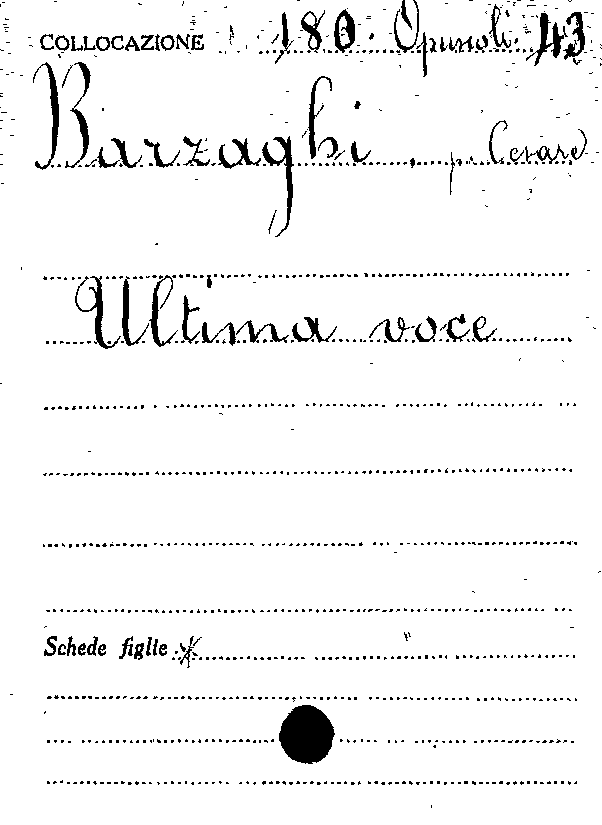 COLLOCAZIONE 180. Opuscoli. 43
Barzaghi. p. Cesare
Ultima voce
Schede figlie *